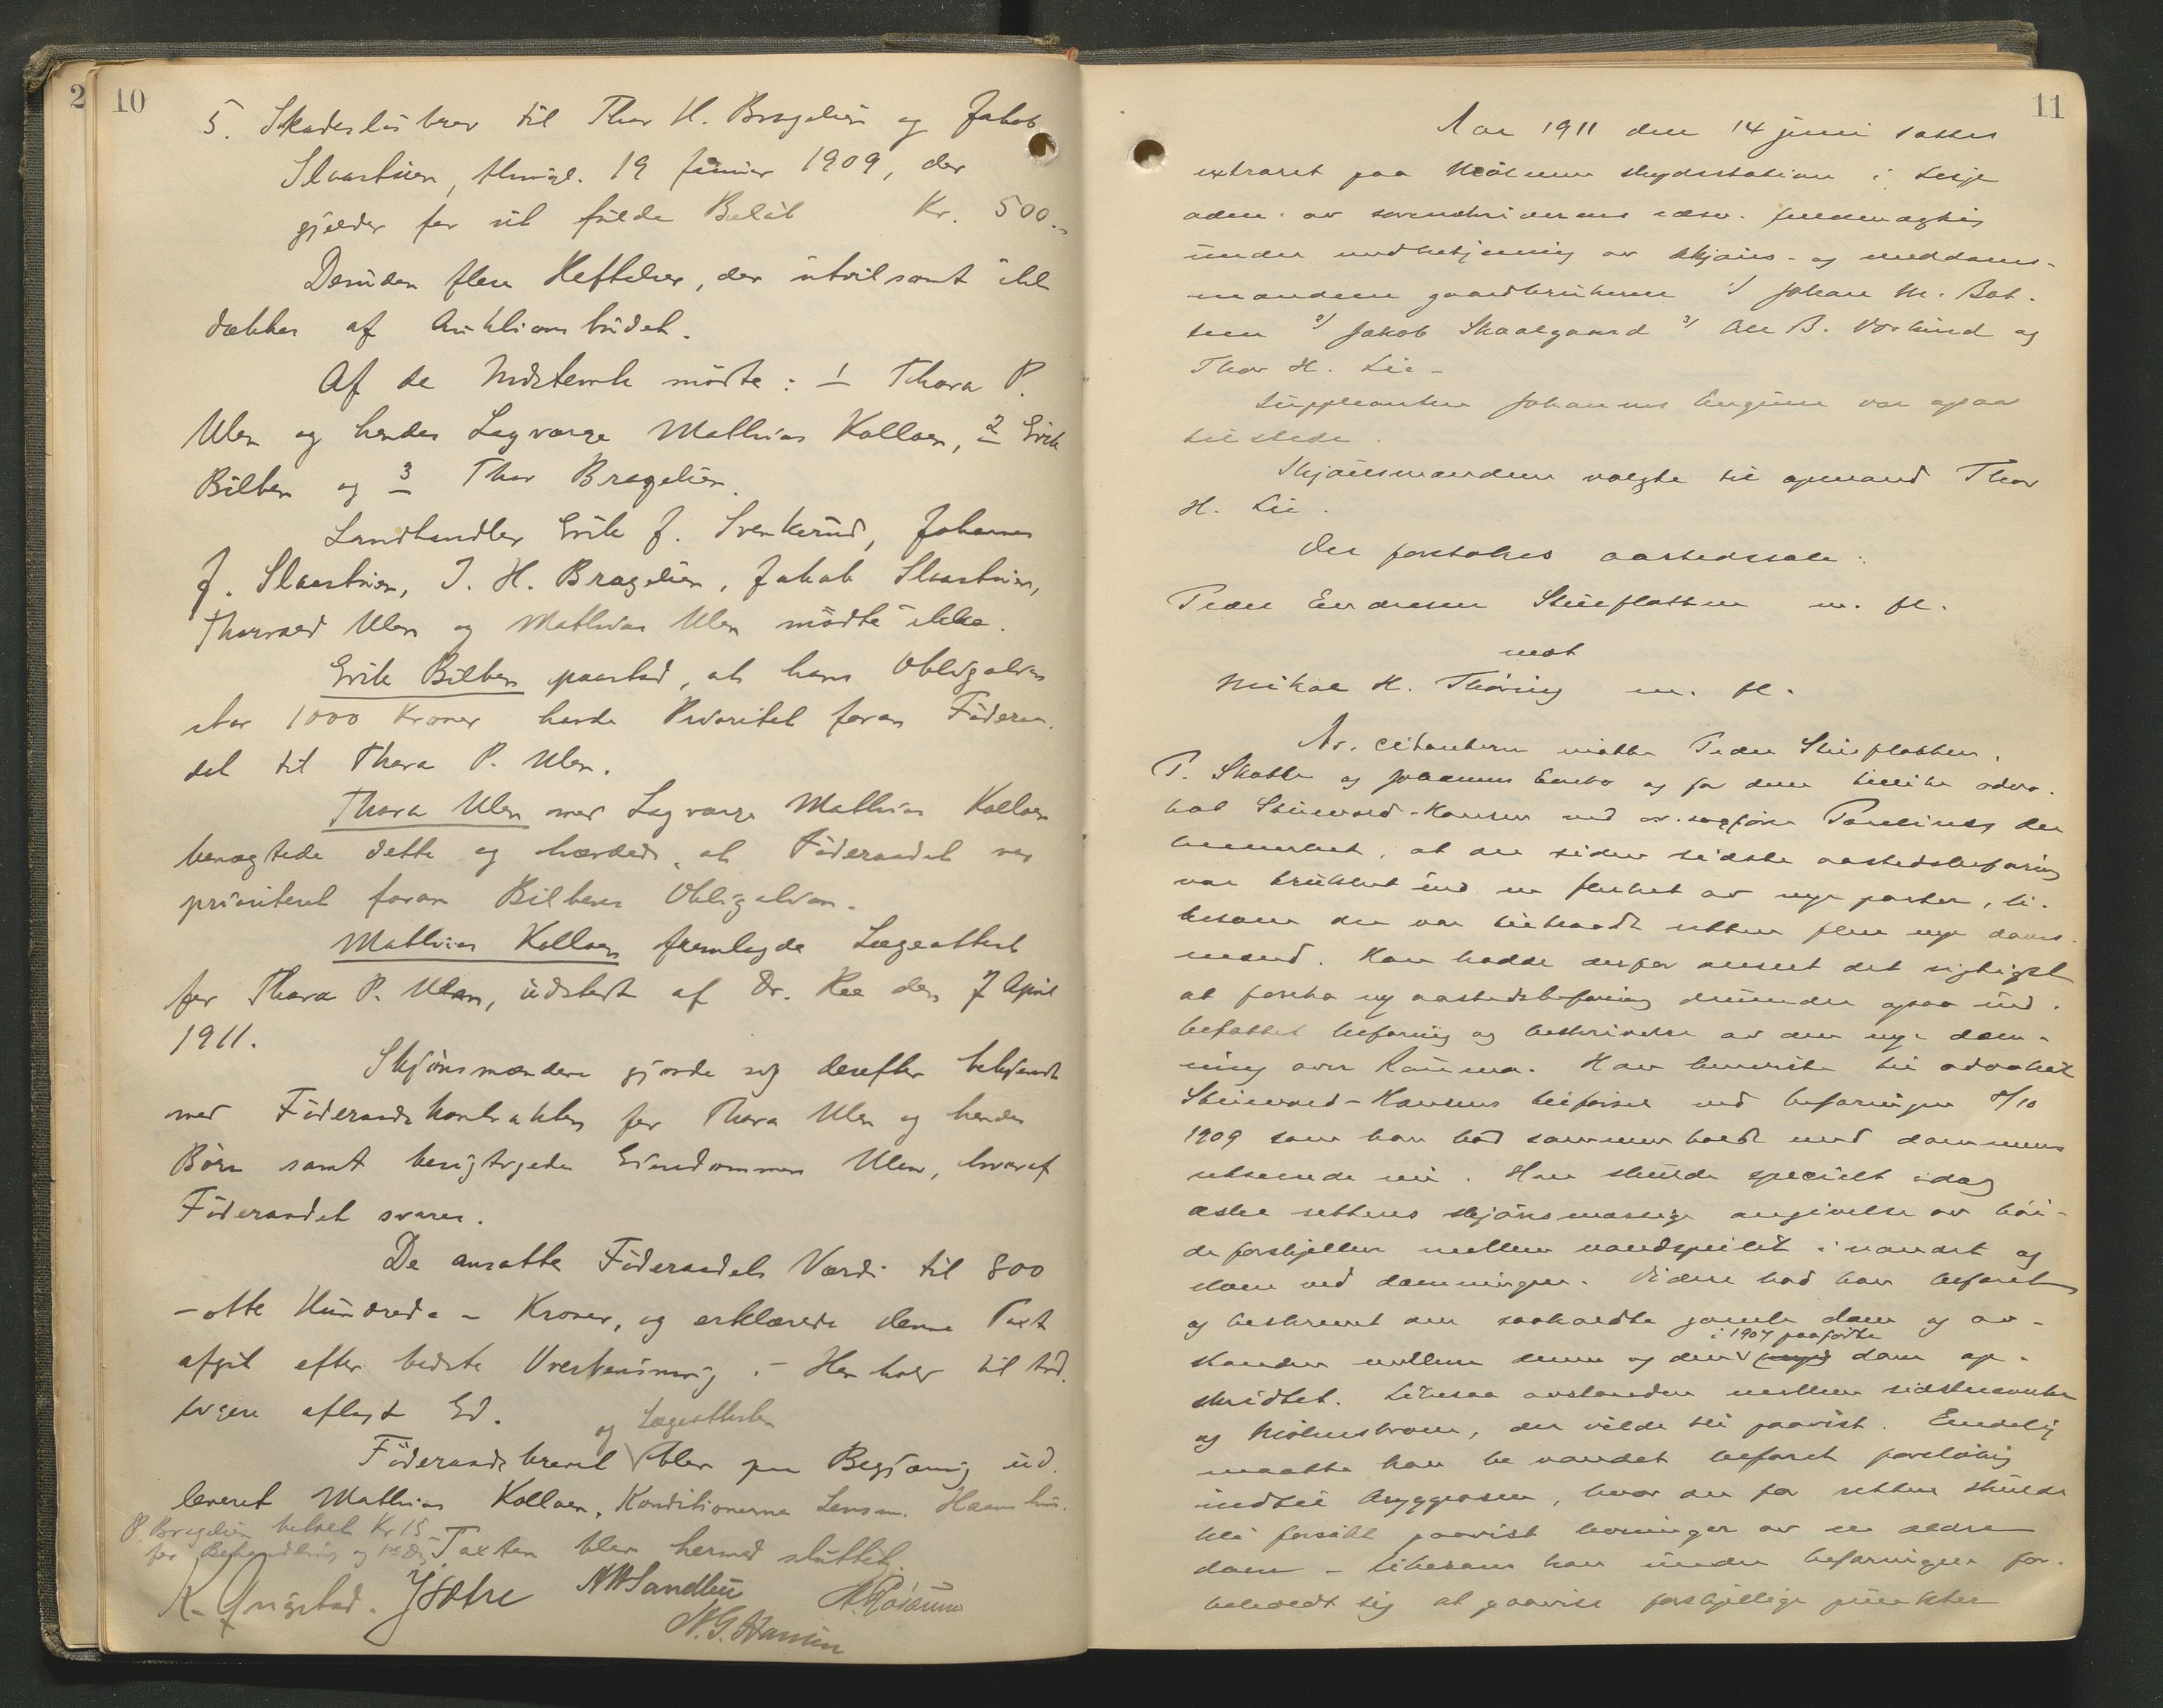 2
10
5. Skadesløsbrev til Thor H. Bragelien og Jakob
Slaastuen, thingl. 19 januar 1909, der
gjælder for sit fulde Beløb Kr. 500.-
Desuden flere Heftelser, der utvilsomt ikke
dækkes af Auktionsbudet.
Af de Indstevnte mødte: 1 Thora P.
Ulen og hendes Lagværge Mathias Kolloen, 2 Erik
Bilben og 3 Thor Bragelien.
Landhandler Erik J. Svenkerud, Johannes
J. Slaastuen, T. H. Bragelien, Jakob Slaastuen,
Thorvald Ulen og Mathias Ulen mødte ikke.
Erik Bilben paastod, at hans Obligation
stor 1000 Kroner havde Prioritet foran Føderaa-
det til Thora P. Ulen.
Thora Ulen med Lagværge Mathias Kolloen
benægtede dette og hævdede, at Føderaadet var
prioriteret foran Bilbens Obligation.
Mathias Kolloen fremlagde Lægeattest
for Thora P. Ulen, udstedt af Dr. Ree den 7 April
1911.
Skjønsmændene gjorde sig derefter bekjendt
med Føderaadskontrakten for Thora Ulen og hendes
Børn samt besigtigede Eiendommen Ulen, hvoraf
Føderaadet svares.
De ansatte Føderaadets Værdi til 800
- otte Hundrede - Kroner, og erklærede denne Taxt
afgit efter bedste Overbevisning i Henhold til tid-
ligere aflagt Ed.
og Lægeattesten
Føderaadsbrevet blev paa Begjæring ud-
leveret Mathias Kolloen. Konditionerne Lensm.
P. Bragelien betalt Kr 15
for Behandling og
Taxten blev hermed sluttet.
K. J. Sætre N W Sandbu
N. G. Hansen
11
Aar 1911 den 14 juni sattes
extraret paa Mølmen skydsstation i Lesje
adm. av sorenskriverens edsv. fuldmægtig
under medbetjening av skjøns- og meddoms-
mændene gaardbrukerne 1/ Johan M. Bot-
ten 2/ Jakob Skaalgaard 3/ Ole B. og
Thor H. Lie -
Suppleanten Johannes var ogsaa
tilstede.
Skjønsmændene valgte til opmand Thor
H. Lie.
Der foretokes aastedssak:
Peder Endresen Stueflotten m. fl.
mot
Mikal H. Thøring m. fl.
Av citanterne møtte Peder Stueflotten,
P. Skotte og Johannes Enebo og for dem tillike advo-
kat Steinvard-Hansen ved o.r.sagfører Paulsness der
bemerket, at der siden sidste aastedsbefaring
var trukket ind en flerhet av nye parter, li-
kesom der var tiltraadt retten flere nye doms-
mænd. Han hadde derfor anseet det rigtigst
at foreta ny aastedsbefaring derunder ogsaa ind-
befattet befaring og beskrivelse av den nye dæm-
ning over Rauma. Han henviste til advokat
Steinvard-Hansens tilførsel ved befaringen 8/10
1909 som han bad sammenholdt med dammens
utseende nu. Han skulde specielt idag
æske rettens skjønsmæssige angivelse av høi-
deforskjellen mellem vandspeilet i vandet og
elven ved dæmningen. Videre bad han befaret
og beskrevet den saakaldte gamle dam og av-
i 1907 paaførte
standen mellem denne og den nye dam op-
skridtet. Likesaa avstanden mellem sidstnævnte
og Mølmsbroen, der vilde bli paavist. Endelig
maatte han be vandet befaret foreløbig
indtil, hvor der for retten skulde
bli forsøkt paavist levninger av en ældre
dam - likesom han under befaringen for-
beholdt sig at paavise forskjellige punkter